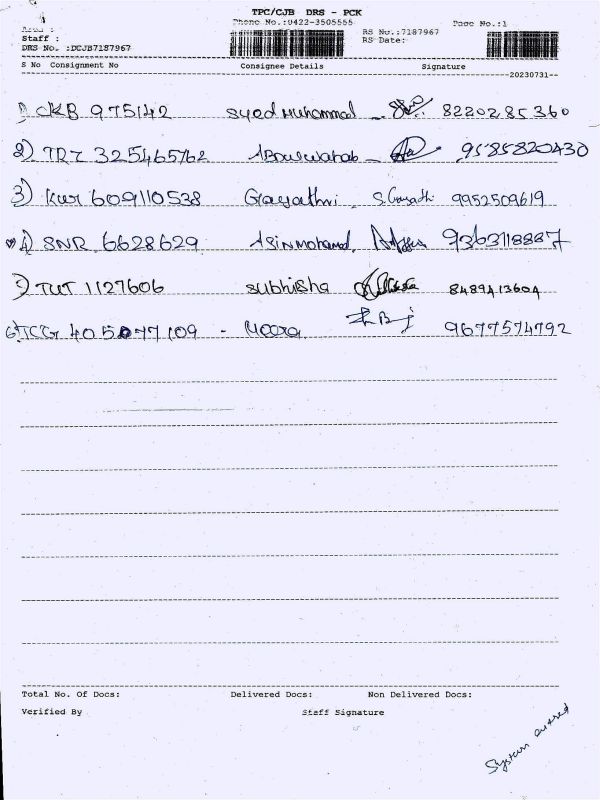 TPC/CJB DRS - PCK
Phone No.:0422-3505555
Page No.:1
Area :
Staff :
RS No.:7187967
DRS No. :DCJB7187967
RS Date:
S No Consignment No Consignee Details Signature
20230731--
1) CKB 975142 Syed Muhammad 8220285360
2) TRZ 325465762 Abdulwahab 9585820430
3) KUR 609110538 Gayathri S. Gayathri 9952509619
4) SNR 6628629 Asin Mohamed 9363118887
5) TUT 1127606 Subhisha 8489413604
6) TCG 405077109 - 9677574792
Total No. Of Docs: Delivered Docs: Non Delivered Docs:
Verified By Staff Signature
System entered